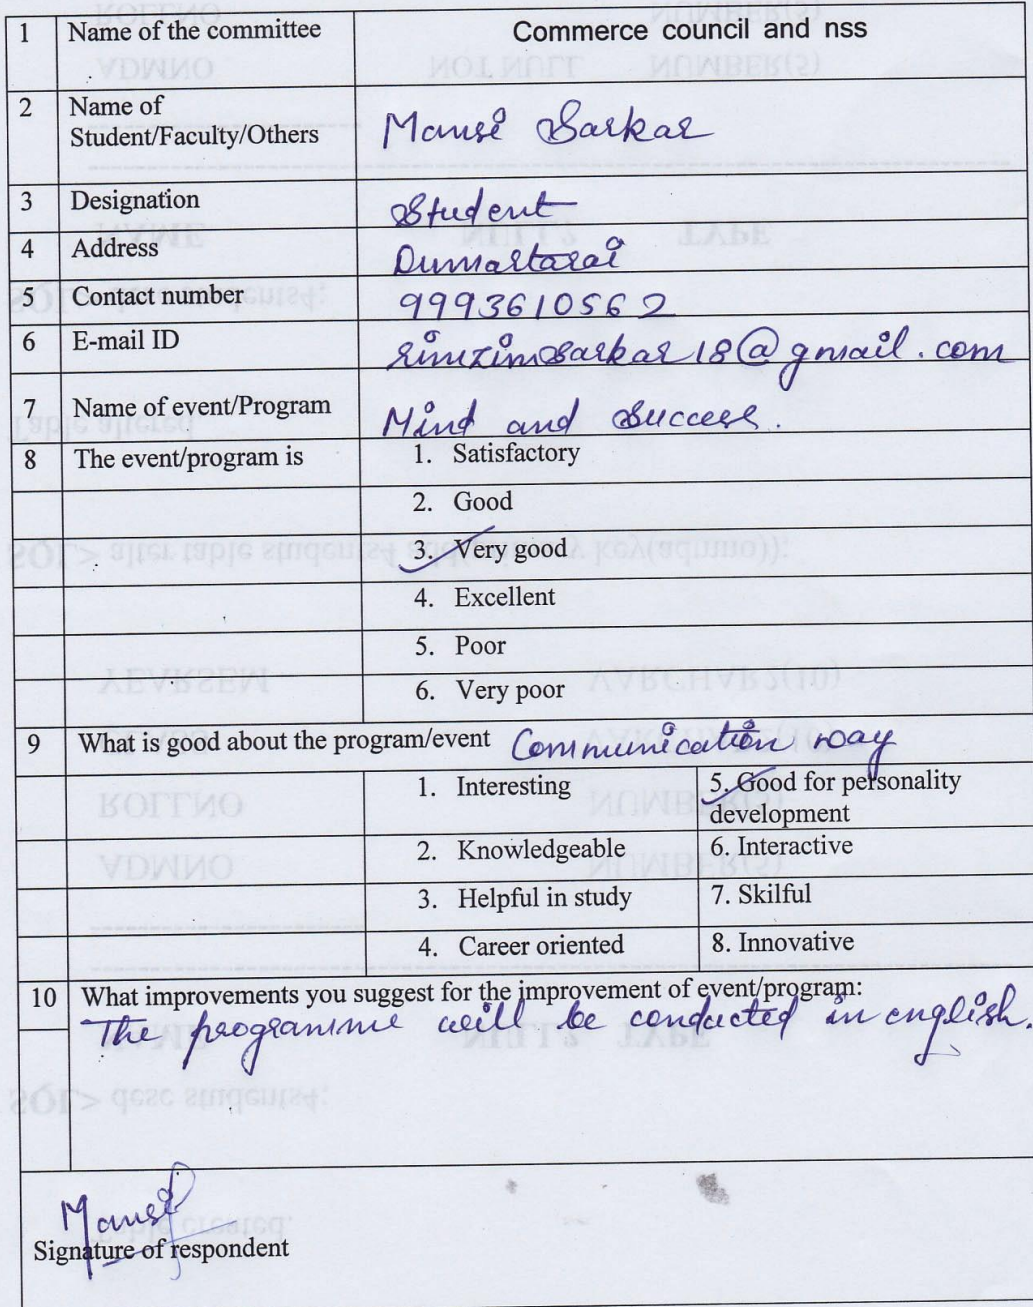 1 Name of the committee Commerce council and nss
2 Name of
Student/Faculty/Others Mansi Sarkar
3 Designation Student
4 Address Dumartarai
5 Contact number 9993610562
6 E-mail ID rimzimsarkar18@gmail.com
7 Name of event/Program Mind and Success.
8 The event/program is 1. Satisfactory
2. Good
3. Very good
4. Excellent
5. Poor
6. Very poor
9 What is good about the program/event Communication way
1. Interesting 5. Good for personality
development
2. Knowledgeable 6. Interactive
3. Helpful in study 7. Skilful
4. Career oriented 8. Innovative
10 What improvements you suggest for the improvement of event/program:
The programme will be conducted in english.
Mansi
Signature of respondent